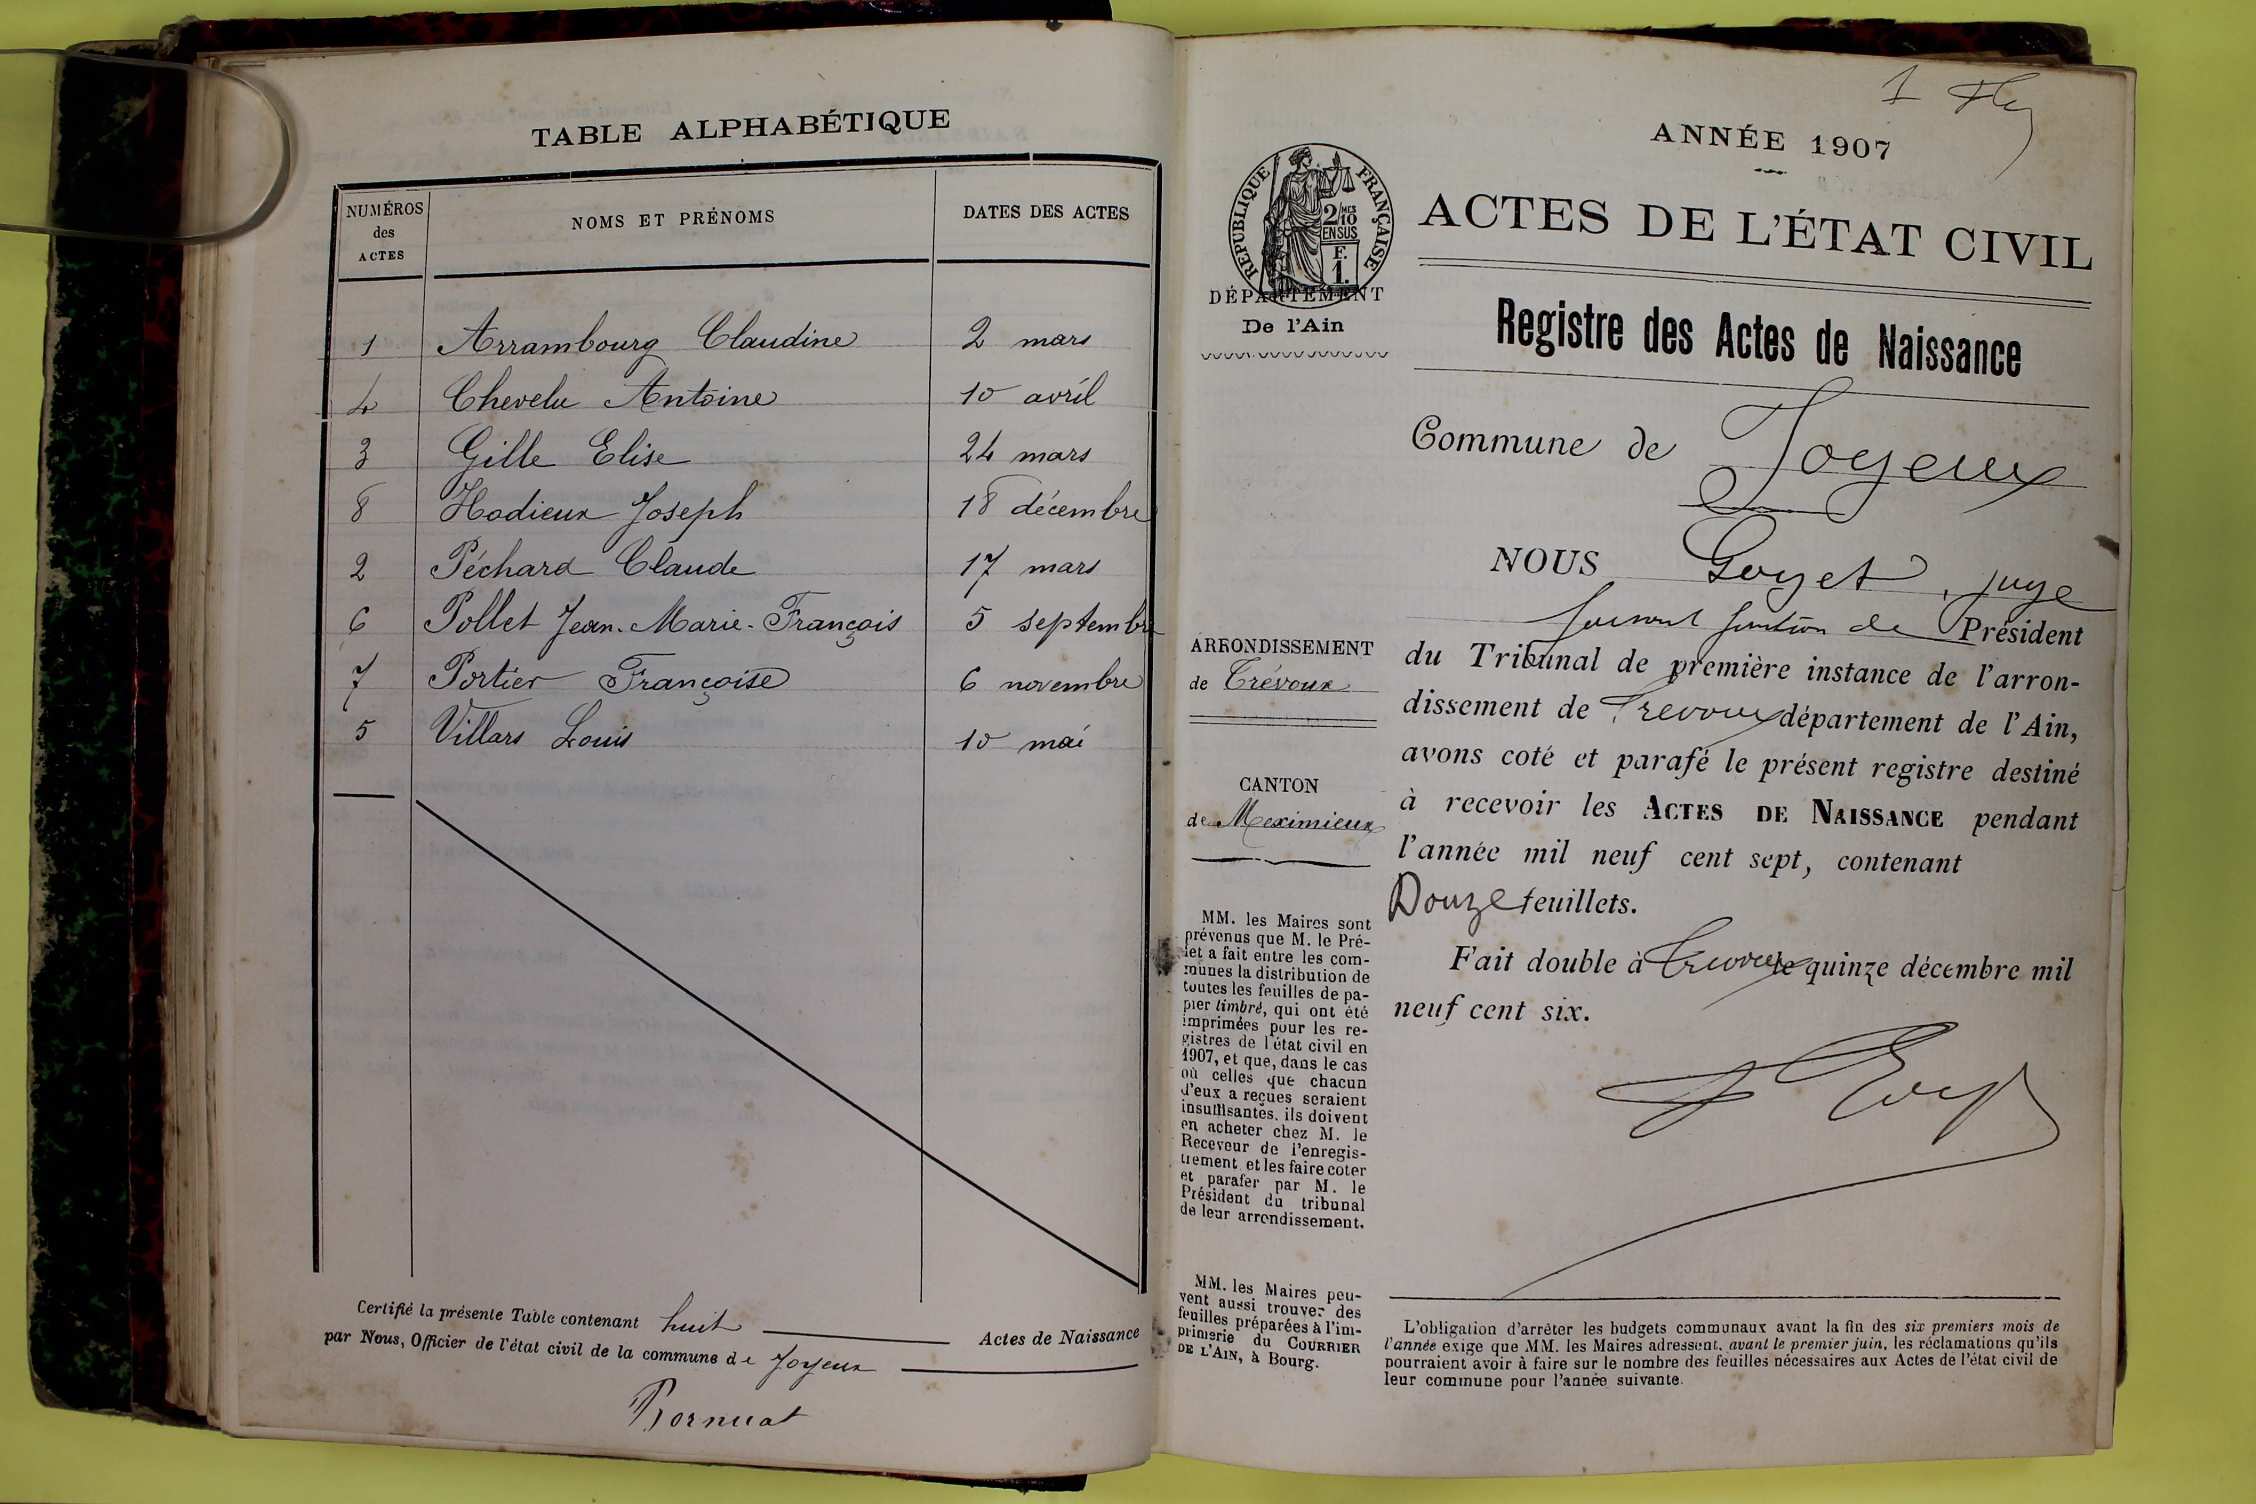 TABLE ALPHABÉTIQUE
NUMÉROS des ACTES NOMS ET PRÉNOMS DATES DES ACTES
1 Arrambourg Claudine 2 mars
4 Chevelu Antoine 10 avril
3 Gille Elise 24 mars
8 Hodieux Joseph 18 décembre
2 Péchard Claude 17 mars
6 Pollet Jean-Marie-François 5 septembre
7 Portier Françoise 6 novembre
5 Villars Louis 10 mai
Certifié la présente Table contenant huit Actes de Naissance
par Nous, Officier de l'état civil de la commune de Joyeux
Bornuat
1
ANNÉE 1907
RÉPUBLIQUE FRANÇAISE
2/10MES
EN SUS
F.
1.
DÉPARTEMENT
De l'Ain
ACTES DE L'ÉTAT CIVIL
Registre des Actes de Naissance
Commune de Joyeux
NOUS Goyet, juge
faisant fonction de Président
du Tribunal de première instance de l'arron-
dissement de Trévoux département de l'Ain,
avons coté et parafé le présent registre destiné
à recevoir les ACTES DE NAISSANCE pendant
l'année mil neuf cent sept, contenant
Douze feuillets.
Fait double à Trévoux le quinze décembre mil
neuf cent six.
ARRONDISSEMENT
de Trévoux
CANTON
de Meximieux
MM. les Maires sont
prévenus que M. le Pré-
fet a fait entre les com-
munes la distribution de
toutes les feuilles de pa-
pier timbré, qui ont été
imprimées pour les re-
gistres de l'état civil en
1907, et que, dans le cas
où celles que chacun
d'eux a reçues seraient
insuffisantes, ils doivent
en acheter chez M. le
Receveur de l'enregis-
trement et les faire coter
et parafer par M. le
Président du tribunal
de leur arrondissement.
MM. les Maires peu-
vent aussi trouver des
feuilles préparées à l'im-
primerie du COURRIER
DE L'AIN, à Bourg.
L'obligation d'arrêter les budgets communaux avant la fin des six premiers mois de
l'année exige que MM. les Maires adressent, avant le premier juin, les réclamations qu'ils
pourraient avoir à faire sur le nombre des feuilles nécessaires aux Actes de l'état civil de
leur commune pour l'année suivante.